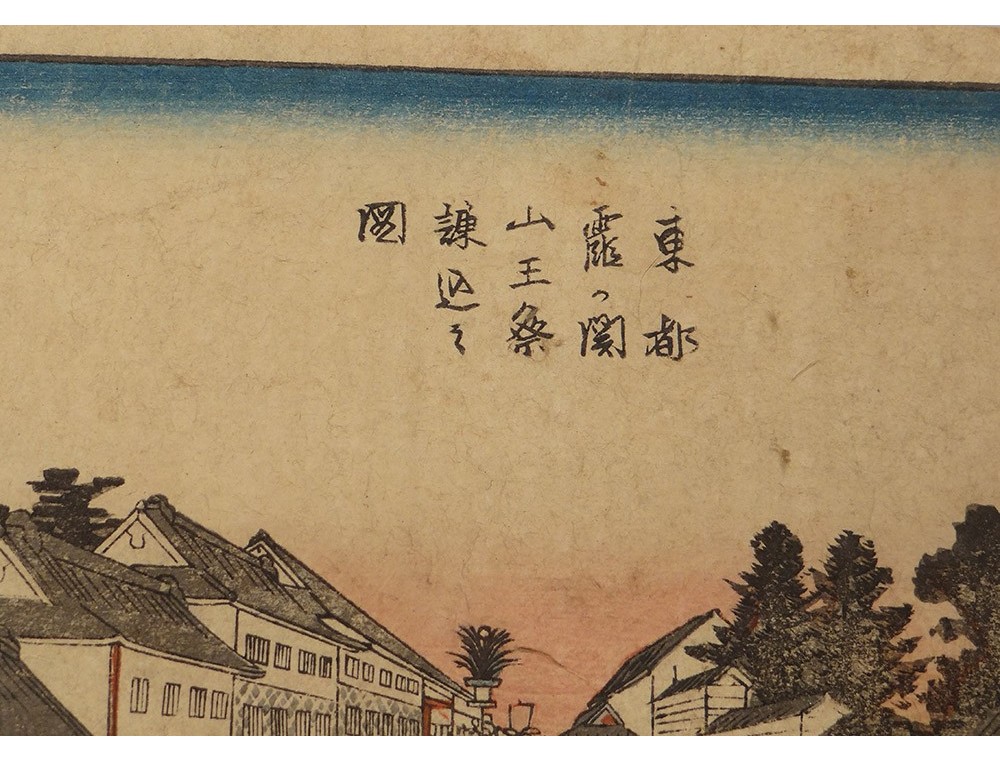 東都
霞ヶ関
山王祭
練込之
図